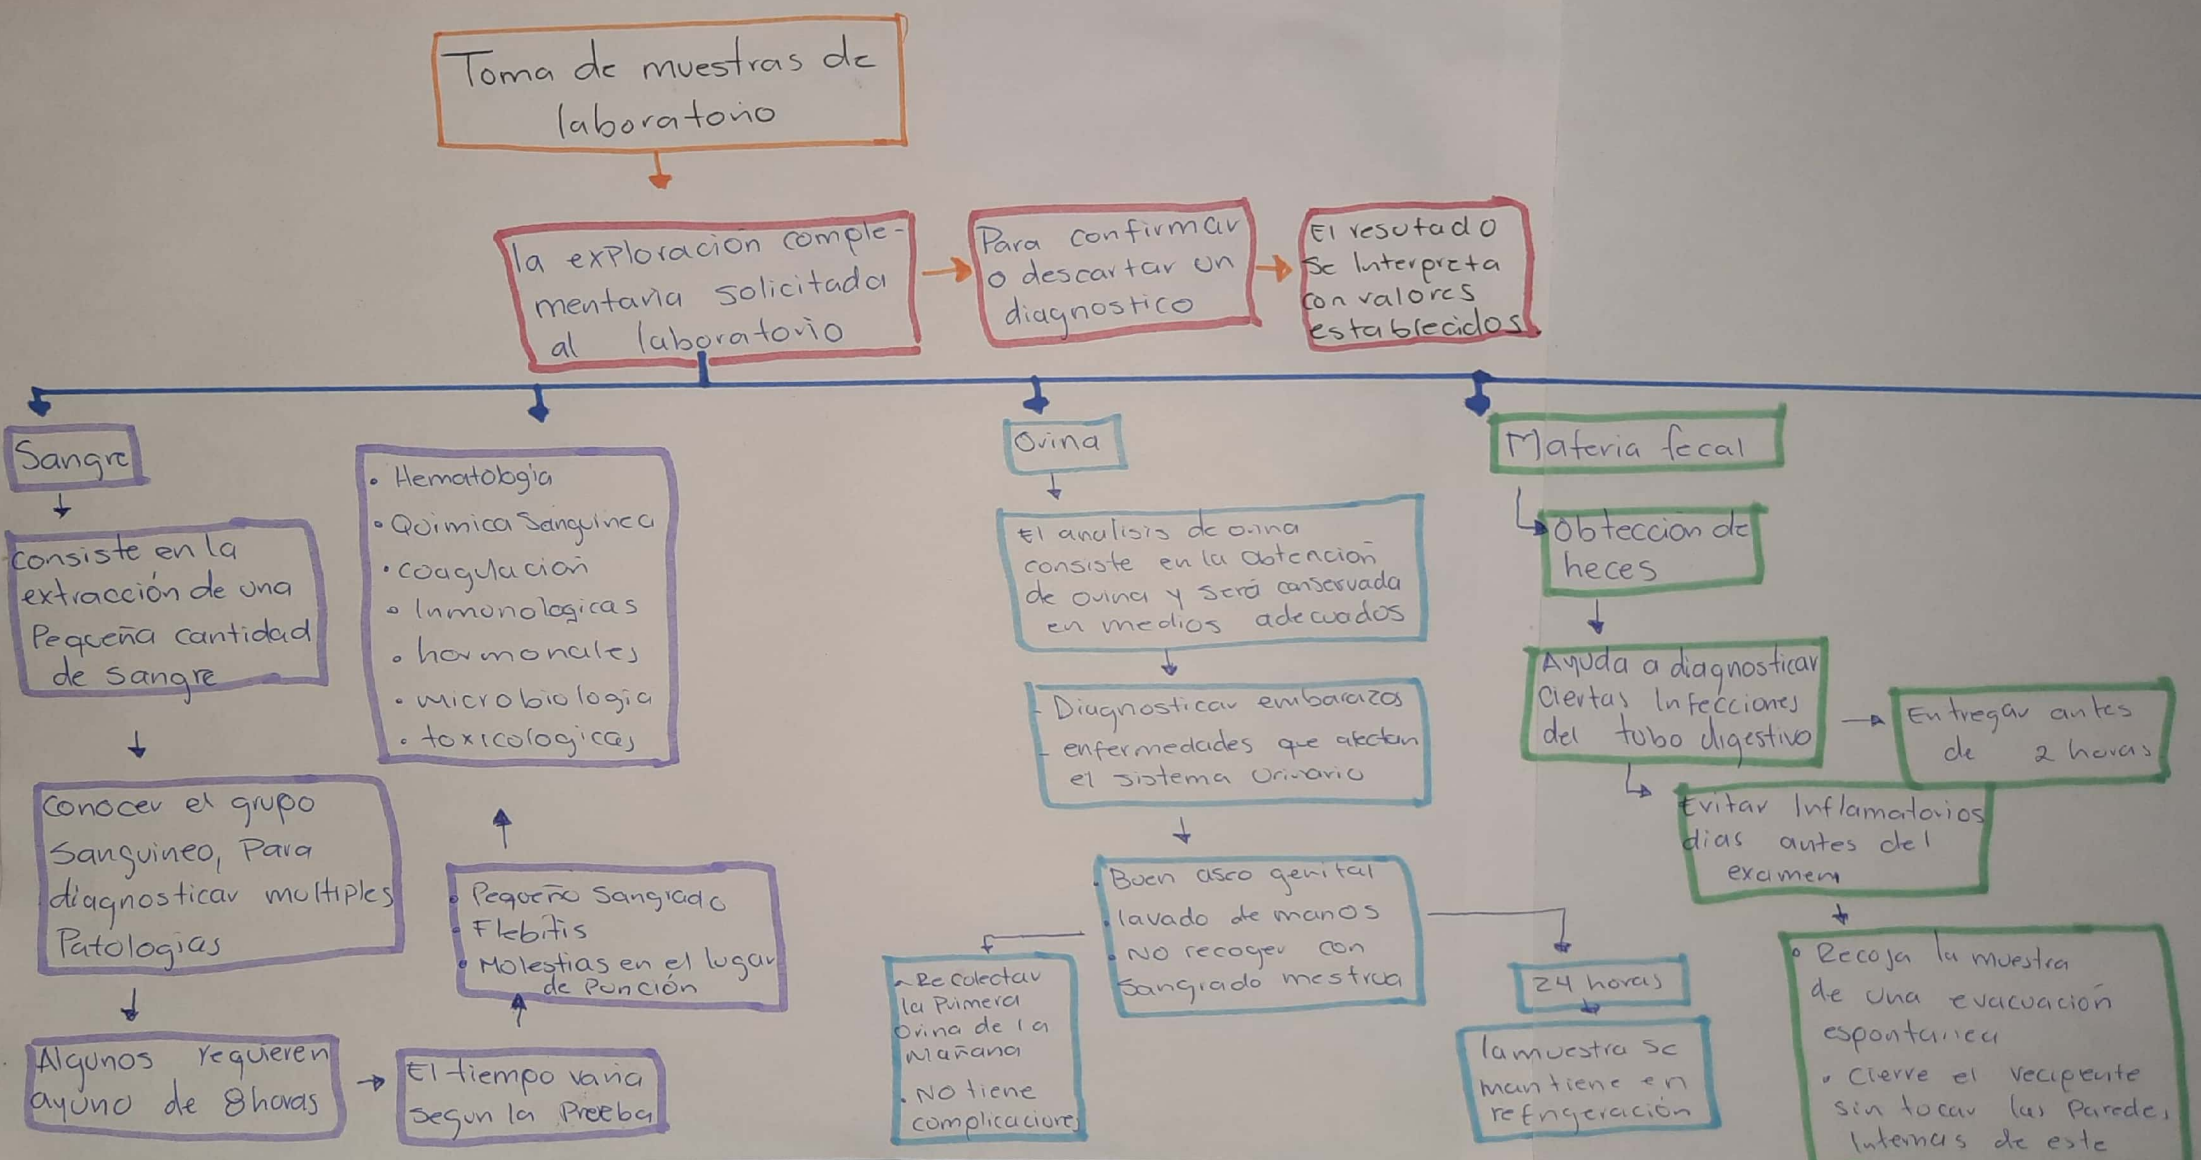 Toma de muestras de
laboratorio
la exploración comple-
mentaria solicitada
al laboratorio
Para confirmar
o descartar un
diagnostico
El resutado
se Interpreta
con valores
establecidos.
Sangre
consiste en la
extracción de una
Pequeña cantidad
de sangre
Conocer el grupo
Sanguineo, Para
diagnosticar multiples
Patologias
Algunos requieren
ayuno de 8 horas
El tiempo varia
segun la Preeba
• Pequeño Sangrado
• Flebitis
• Molestias en el lugar
de Punción
• Hematologia
• Quimica Sanguinea
• coagulacion
• Inmunologicas
• hormonales
• microbiologia
• toxicologicas
Orina
El analisis de orina
consiste en la obtencion
de orina y será conservada
en medios adecuados
- Diagnosticar embarazos
- enfermedades que afectan
el sistema Urinario
• Buen aseo genital
• lavado de manos
• No recoger con
Sangrado mestrua
- Recolectar
la Primera
Orina de la
Mañana
• No tiene
complicaciones
24 horas
la muestra se
mantiene en
refrigeración
Materia fecal
Obtección de
heces
Ayuda a diagnosticar
Ciertas Infecciones
del tubo digestivo
Entregar antes
de 2 horas
Evitar Inflamatorios
dias antes del
examen
• Recoja la muestra
de una evacuación
espontanea
• Cierre el recipiente
sin tocar las Paredes
Internas de este